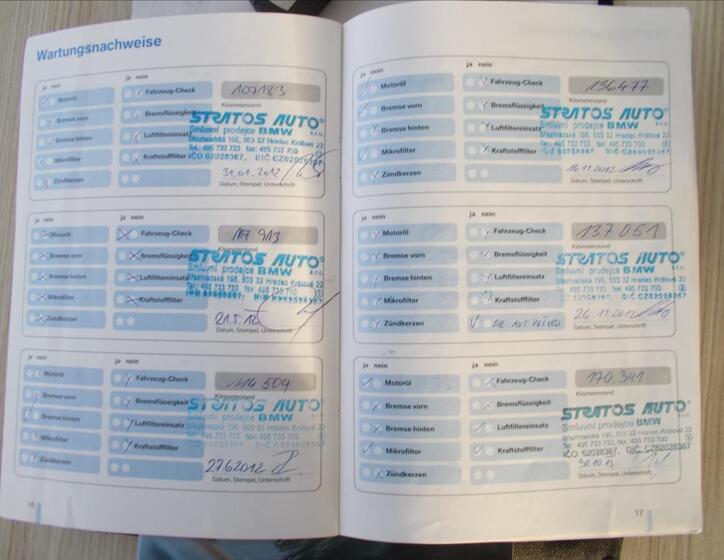 Wartungsnachweise
ja nein
ja nein
Motoröl
Fahrzeug-Check
107183
Kilometerstand
Bremse vorn
Bremsflüssigkeit
STRATOS AUTO s.r.o.
Smluvní prodejce BMW
Bremse hinten
Luftfiltereinsatz
Březhradská 195, 503 32 Hradec Králové 22
Tel.: 495 733 733 fax: 495 733 700
Mikrofilter
Kraftstofffilter
IČO 62028367, DIČ CZ62028367
Zündkerzen
31.01.2012
Datum, Stempel, Unterschrift
ja nein
ja nein
Motoröl
Fahrzeug-Check
Bremse vorn
Bremsflüssigkeit
STRATOS AUTO s.r.o.
Smluvní prodejce BMW
Bremse hinten
Luftfiltereinsatz
Březhradská 195, 503 32 Hradec Králové 22
Tel.: 495 733 733 fax: 495 733 700
Mikrofilter
Kraftstofffilter
Zündkerzen
Datum, Stempel, Unterschrift
ja nein
ja nein
Motoröl
Fahrzeug-Check
114 504
Kilometerstand
Bremse vorn
Bremsflüssigkeit
STRATOS AUTO
Smluvní prodejce BMW
Bremse hinten
Luftfiltereinsatz
Mikrofilter
Kraftstofffilter
Zündkerzen
27.6.2012
Datum, Stempel, Unterschrift
16
ja nein
ja nein
Motoröl
Fahrzeug-Check
136477
Kilometerstand
Bremse vorn
Bremsflüssigkeit
STRATOS AUTO s.r.o.
Smluvní prodejce BMW
Bremse hinten
Luftfiltereinsatz
Březhradská 195, 503 32 Hradec Králové 22
Tel.: 495 733 733 fax: 495 733 700
Mikrofilter
Kraftstofffilter
IČO 62028367, DIČ CZ62028367
Zündkerzen
16.11.2012
Datum, Stempel, Unterschrift
ja nein
ja nein
Motoröl
Fahrzeug-Check
137 051
Kilometerstand
Bremse vorn
Bremsflüssigkeit
STRATOS AUTO s.r.o.
Smluvní prodejce BMW
Bremse hinten
Luftfiltereinsatz
Březhradská 195, 503 32 Hradec Králové 22
Tel.: 495 733 733 fax: 495 733 700
Mikrofilter
Kraftstofffilter
IČO 62028367, DIČ CZ62028367
Zündkerzen
26.11.2012
Datum, Stempel, Unterschrift
ja nein
ja nein
Motoröl
Fahrzeug-Check
170 341
Kilometerstand
Bremse vorn
Bremsflüssigkeit
STRATOS AUTO s.r.o.
Smluvní prodejce BMW
Bremse hinten
Luftfiltereinsatz
Březhradská 195, 503 32 Hradec Králové 22
Tel.: 495 733 733 fax: 495 733 700
Mikrofilter
Kraftstofffilter
IČO 62028367, DIČ CZ62028367
Zündkerzen
Datum, Stempel, Unterschrift
17